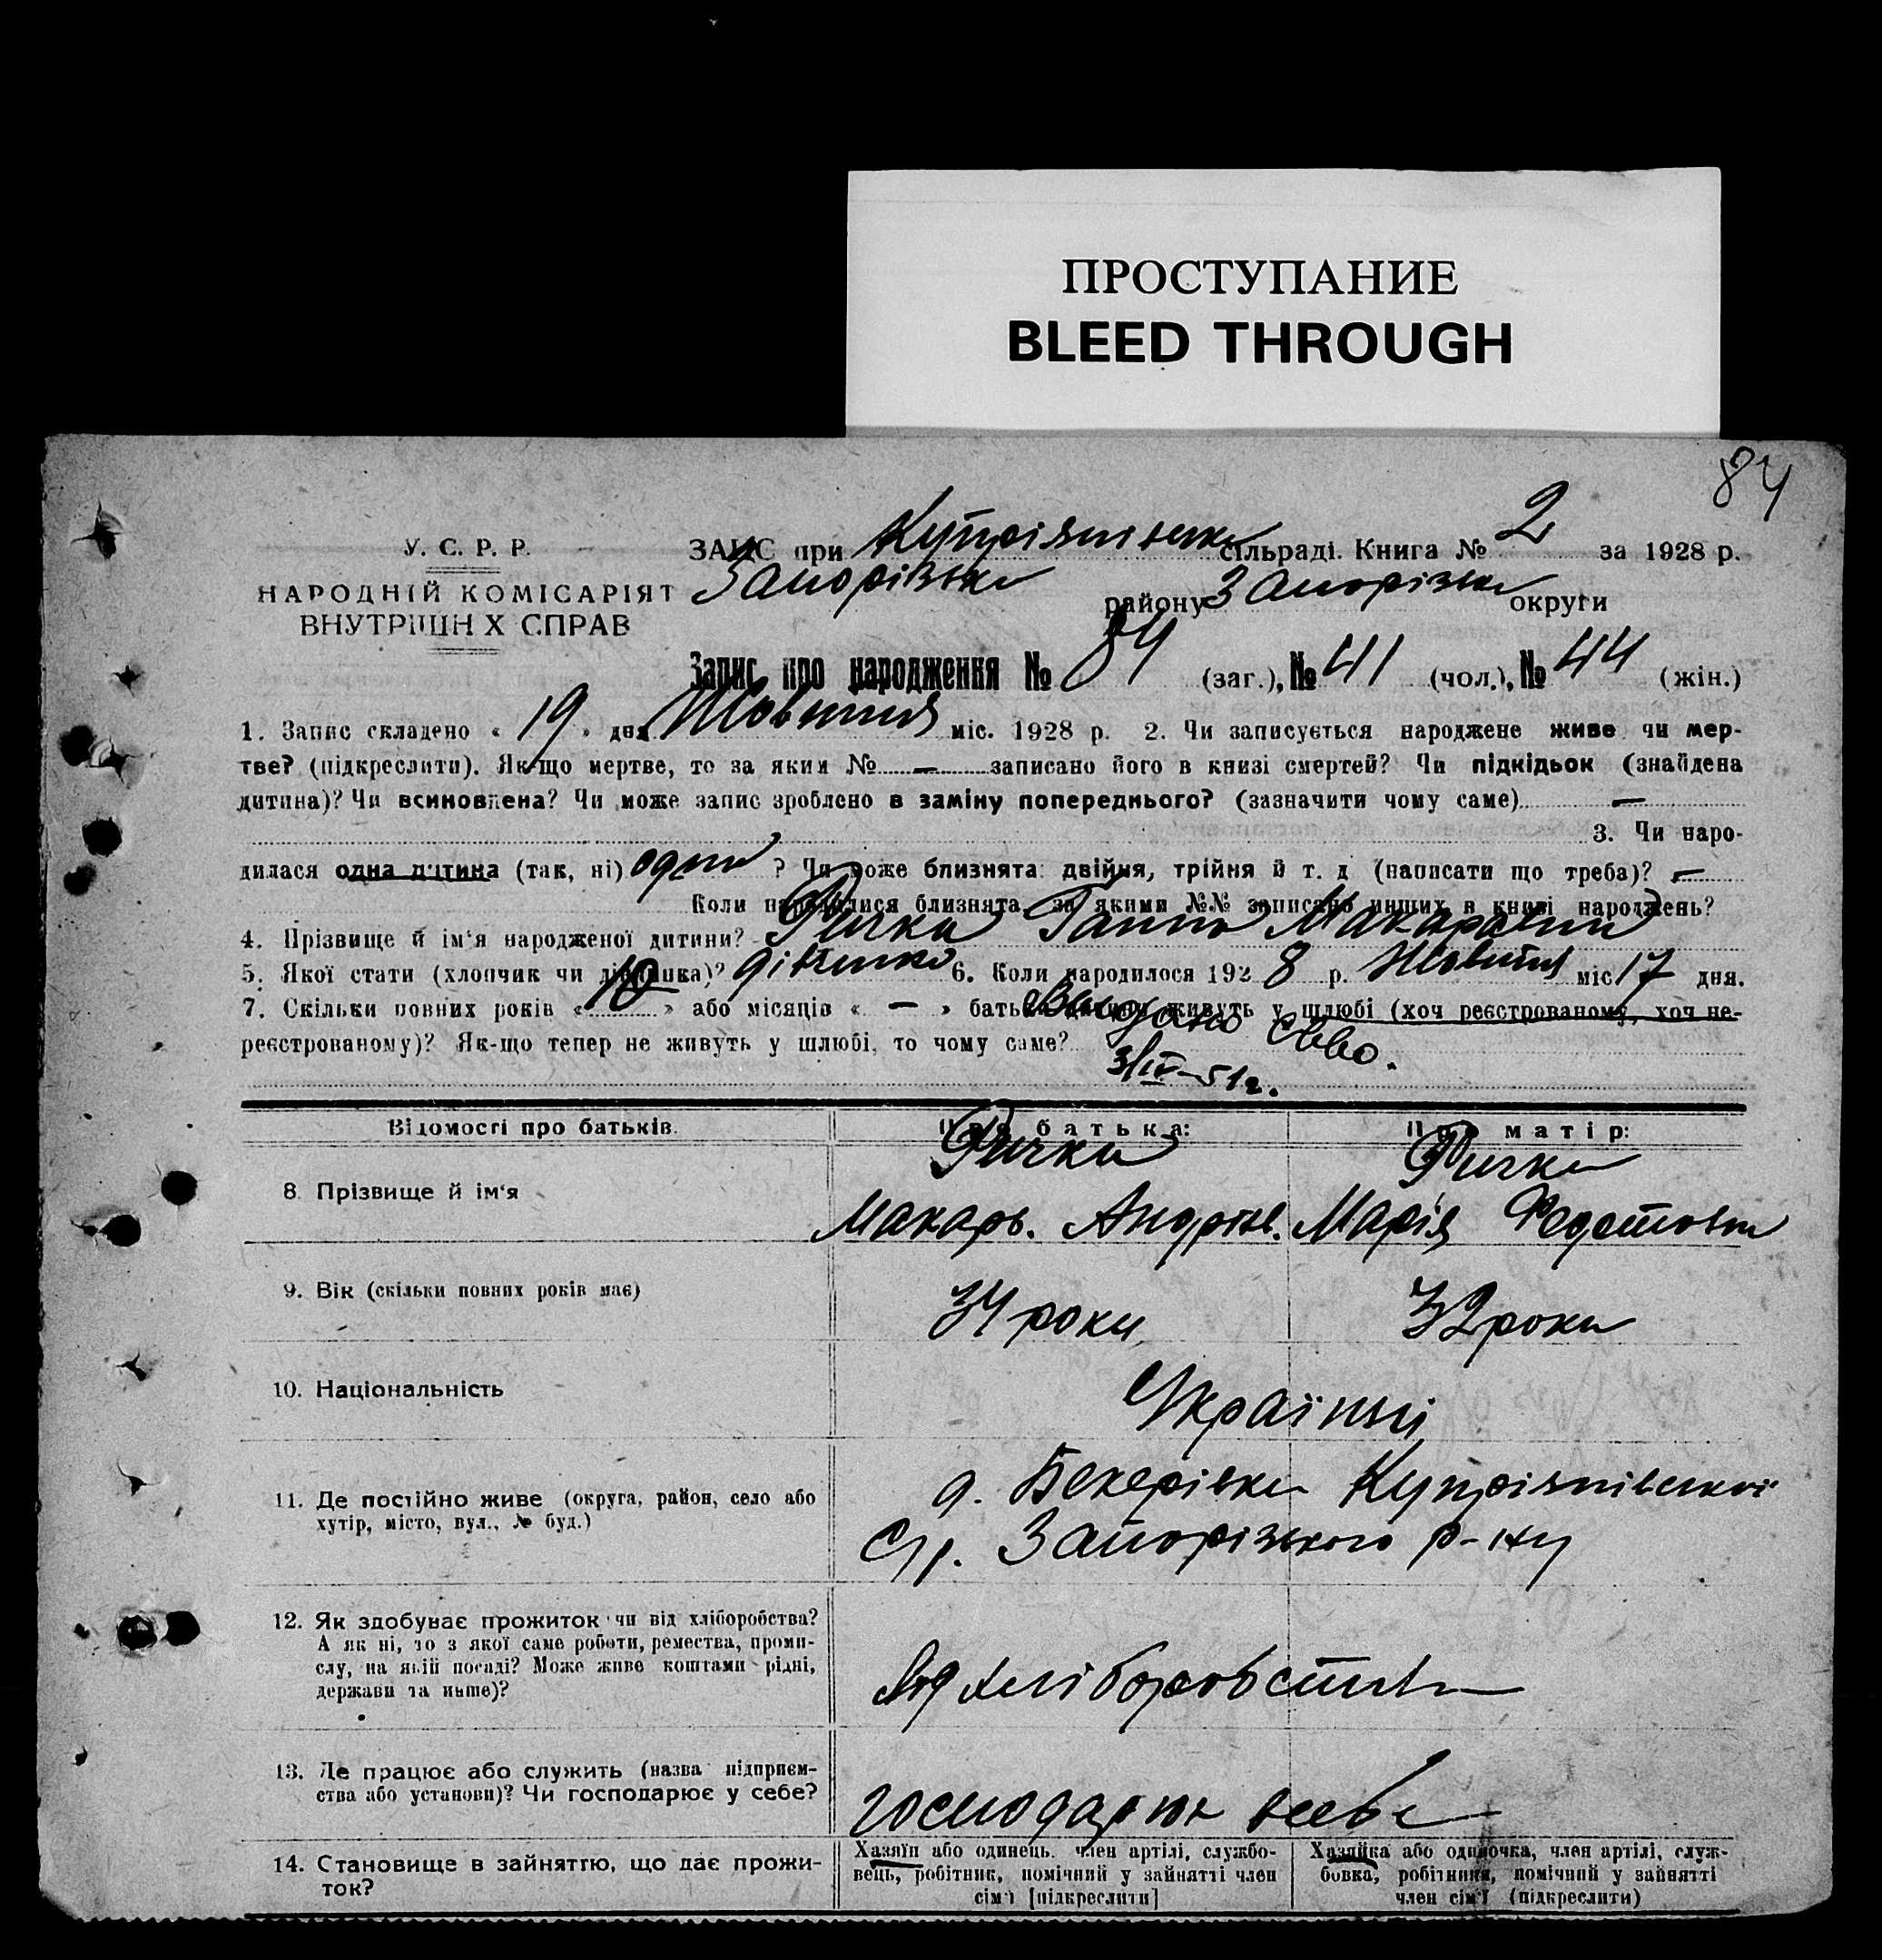 ПРОСТУПАНИЕ
BLEED THROUGH
84
У. С. Р. Р.
НАРОДНІЙ КОМІСАРІЯТ
ВНУТРІШН Х СПРАВ
ЗАПИС при Купріянівські сільраді. Книга № 2 за 1928 р.
Запорізьк району Запорізьк округи
Запис про народження № 84 (заг.), № 41 (чол.), № 44 (жін.)
1. Запис складено « 19 » дня Жовтня міс. 1928 р. 2. Чи записується народжене живе чи мер-
тве? (підкреслити). Як-що мертве, то за яким № — записано його в книзі смертей? Чи підкідьок (знайдена
дитина)? Чи всиновлена? Чи може запис зроблено в заміну попереднього? (зазначити чому саме) —
3. Чи наро-
дилася одна дитина (так, ні) одна ? Чи може близнята: двійня, трійня й т. д (написати що треба)? —
Коли народилися близнята, за якими №№ записано инших в книзі народжень?
4. Прізвище й ім'я народженої дитини? Ричка Ганна Макаровна
5. Якої стати (хлопчик чи дівчинка)? дівчинка 6. Коли народилося 192 8 р. Жовтня міс 17 дня.
7. Скільки повних років « 10 » або місяців « — » батьки дитини живуть у шлюбі (хоч реєстрованому, хоч не-
реєстрованому)? Як-що тепер не живуть у шлюбі, то чому саме?
Выдано Св-во.
3/IV-51г.
Відомості про батьків.
Про батька:
Про матір:
8. Прізвище й ім'я
Ричка
Макарь. Андрієв.
Ричка
Марія Федотовна
9. Вік (скільки повних років має)
34 роки
32 роки
10. Національність
Українці
11. Де постійно живе (округа, район, село або
хутір, місто, вул., № буд.)
д. Бекерівка Купріянівської
С/р. Запорізького р-ну
12. Як здобуває прожиток чи від хліборобства?
А як ні, то з якої саме роботи, ремества, проми-
слу, на якій посаді? Може живе коштами рідні,
держави та инше)?
Від хліборобства
13. Де працює або служить (назва підприєм-
ства або установи)? Чи господарює у себе?
господарює в себе
14. Становище в зайняттю, що дає прожи-
ток?
Хазяїн або одинець. член артілі, службо-
вець, робітник, помічний у зайнятті член
сім'ї [підкреслити]
Хазяйка або одиночка, член артілі, служ-
бовка, робітниця, помічний у зайнятті
член сім'ї (підкреслити)